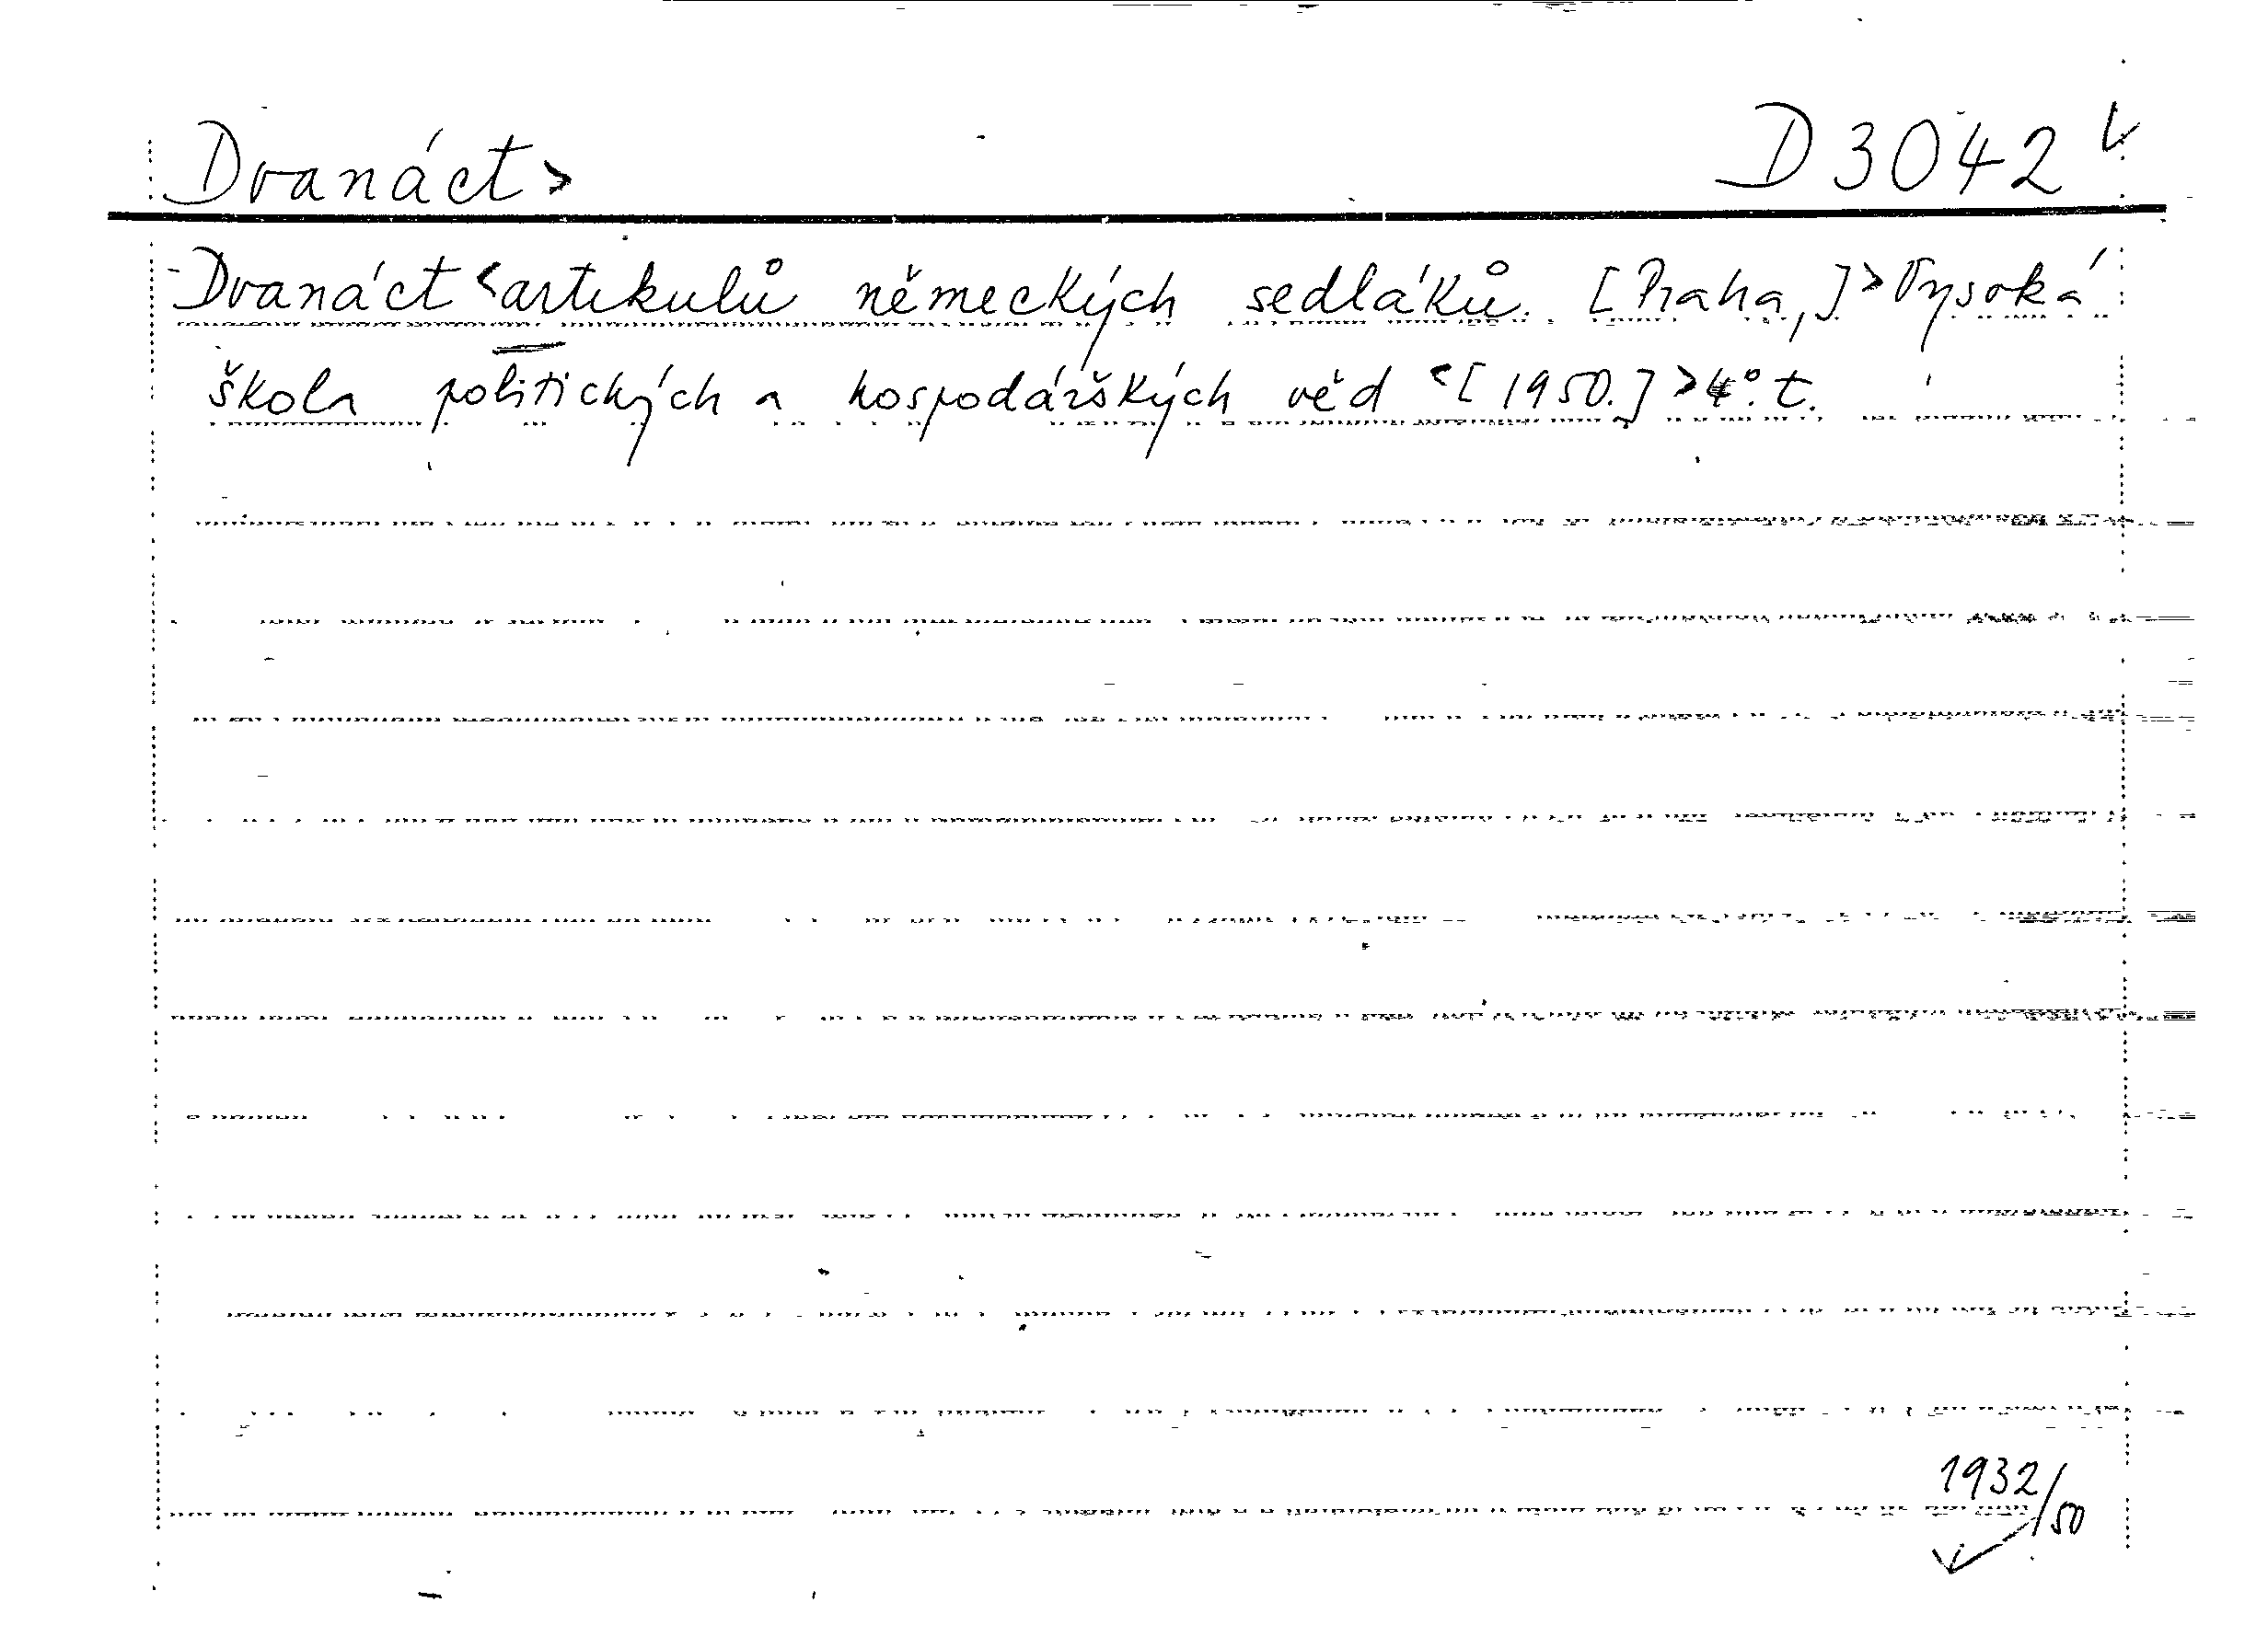 Dvanáct> D 3042
Dvanáct <artikulů německých sedláků. [Praha,]> Vysoká
škola politických a hospodářských věd <[1950.]> 4°. t.
1932/50